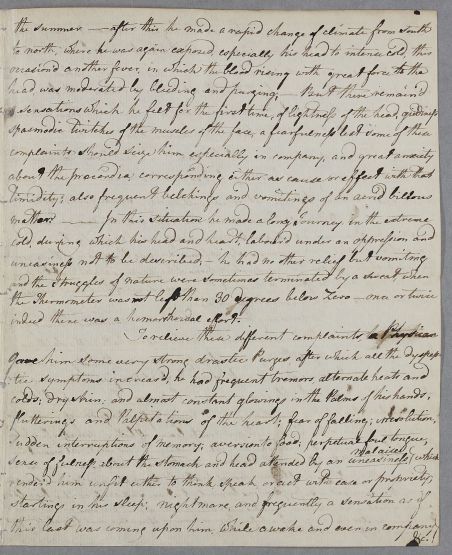 the summer — after this he made a rapid change of climate from South
to north, where he was again exposed especially his head to intense cold this
occasiond another fever, in which the blood rising with great force to the
head was moderated by bleeding and purging, — But there remain'd
sensations which he felt for the first time, of lightness of the head, giddiness
spasmodic twitches of the muscles of the face, a fearfulness lest some of these
complaints should seize him especially in company, and great anxiety
about the præcordia, corresponding either as cause or effect with that
timidity; also frequent belchings and vomitings of an acrid billous
matter. — In this situation he made a long Journey in the extreme
cold during which his head and heart, labour'd under an oppression and
uneasiness not to be described, — he had no other relief but vomiting
and the struggles of nature were sometimes terminated by a sweat when
the Thermometer was not less than 30 degrees below Zero — once or twice
indeed there was a hemorrhoidal effort.
To relieve these different complaints a Physician
gave him some very strong drastic Purges after which all the dyspep-
tic symptoms increas'd, he had frequent tremors alternate heats and
colds, dry skin, and almost constant glowings in the Palms of his hands,
flutterings and Palpitations of the heart, fear of falling, irresolution,
sudden interruptions of memory, aversion to food, perpetual foul tongue,
sense of fulness about the stomach and head attended by an uneasiness, which
malaise
render'd him unfit either to think speak or act with ease or propriety;
startings in his sleep; nightmare, and frequently a sensation as if
this last was coming upon him, while awake and even in company
&c.